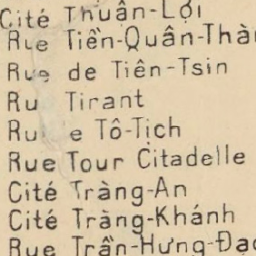 Cité Thuận-Lợi
Rue Tiền-Quân-Thà
Rue de Tiên-Tsin
Ru Tirant
Ru e Tô-Tịch
Rue Tour Citadelle
Cité Tràng-An
Cité Tràng-Khánh
Rue Trần-Hưng-Đạo